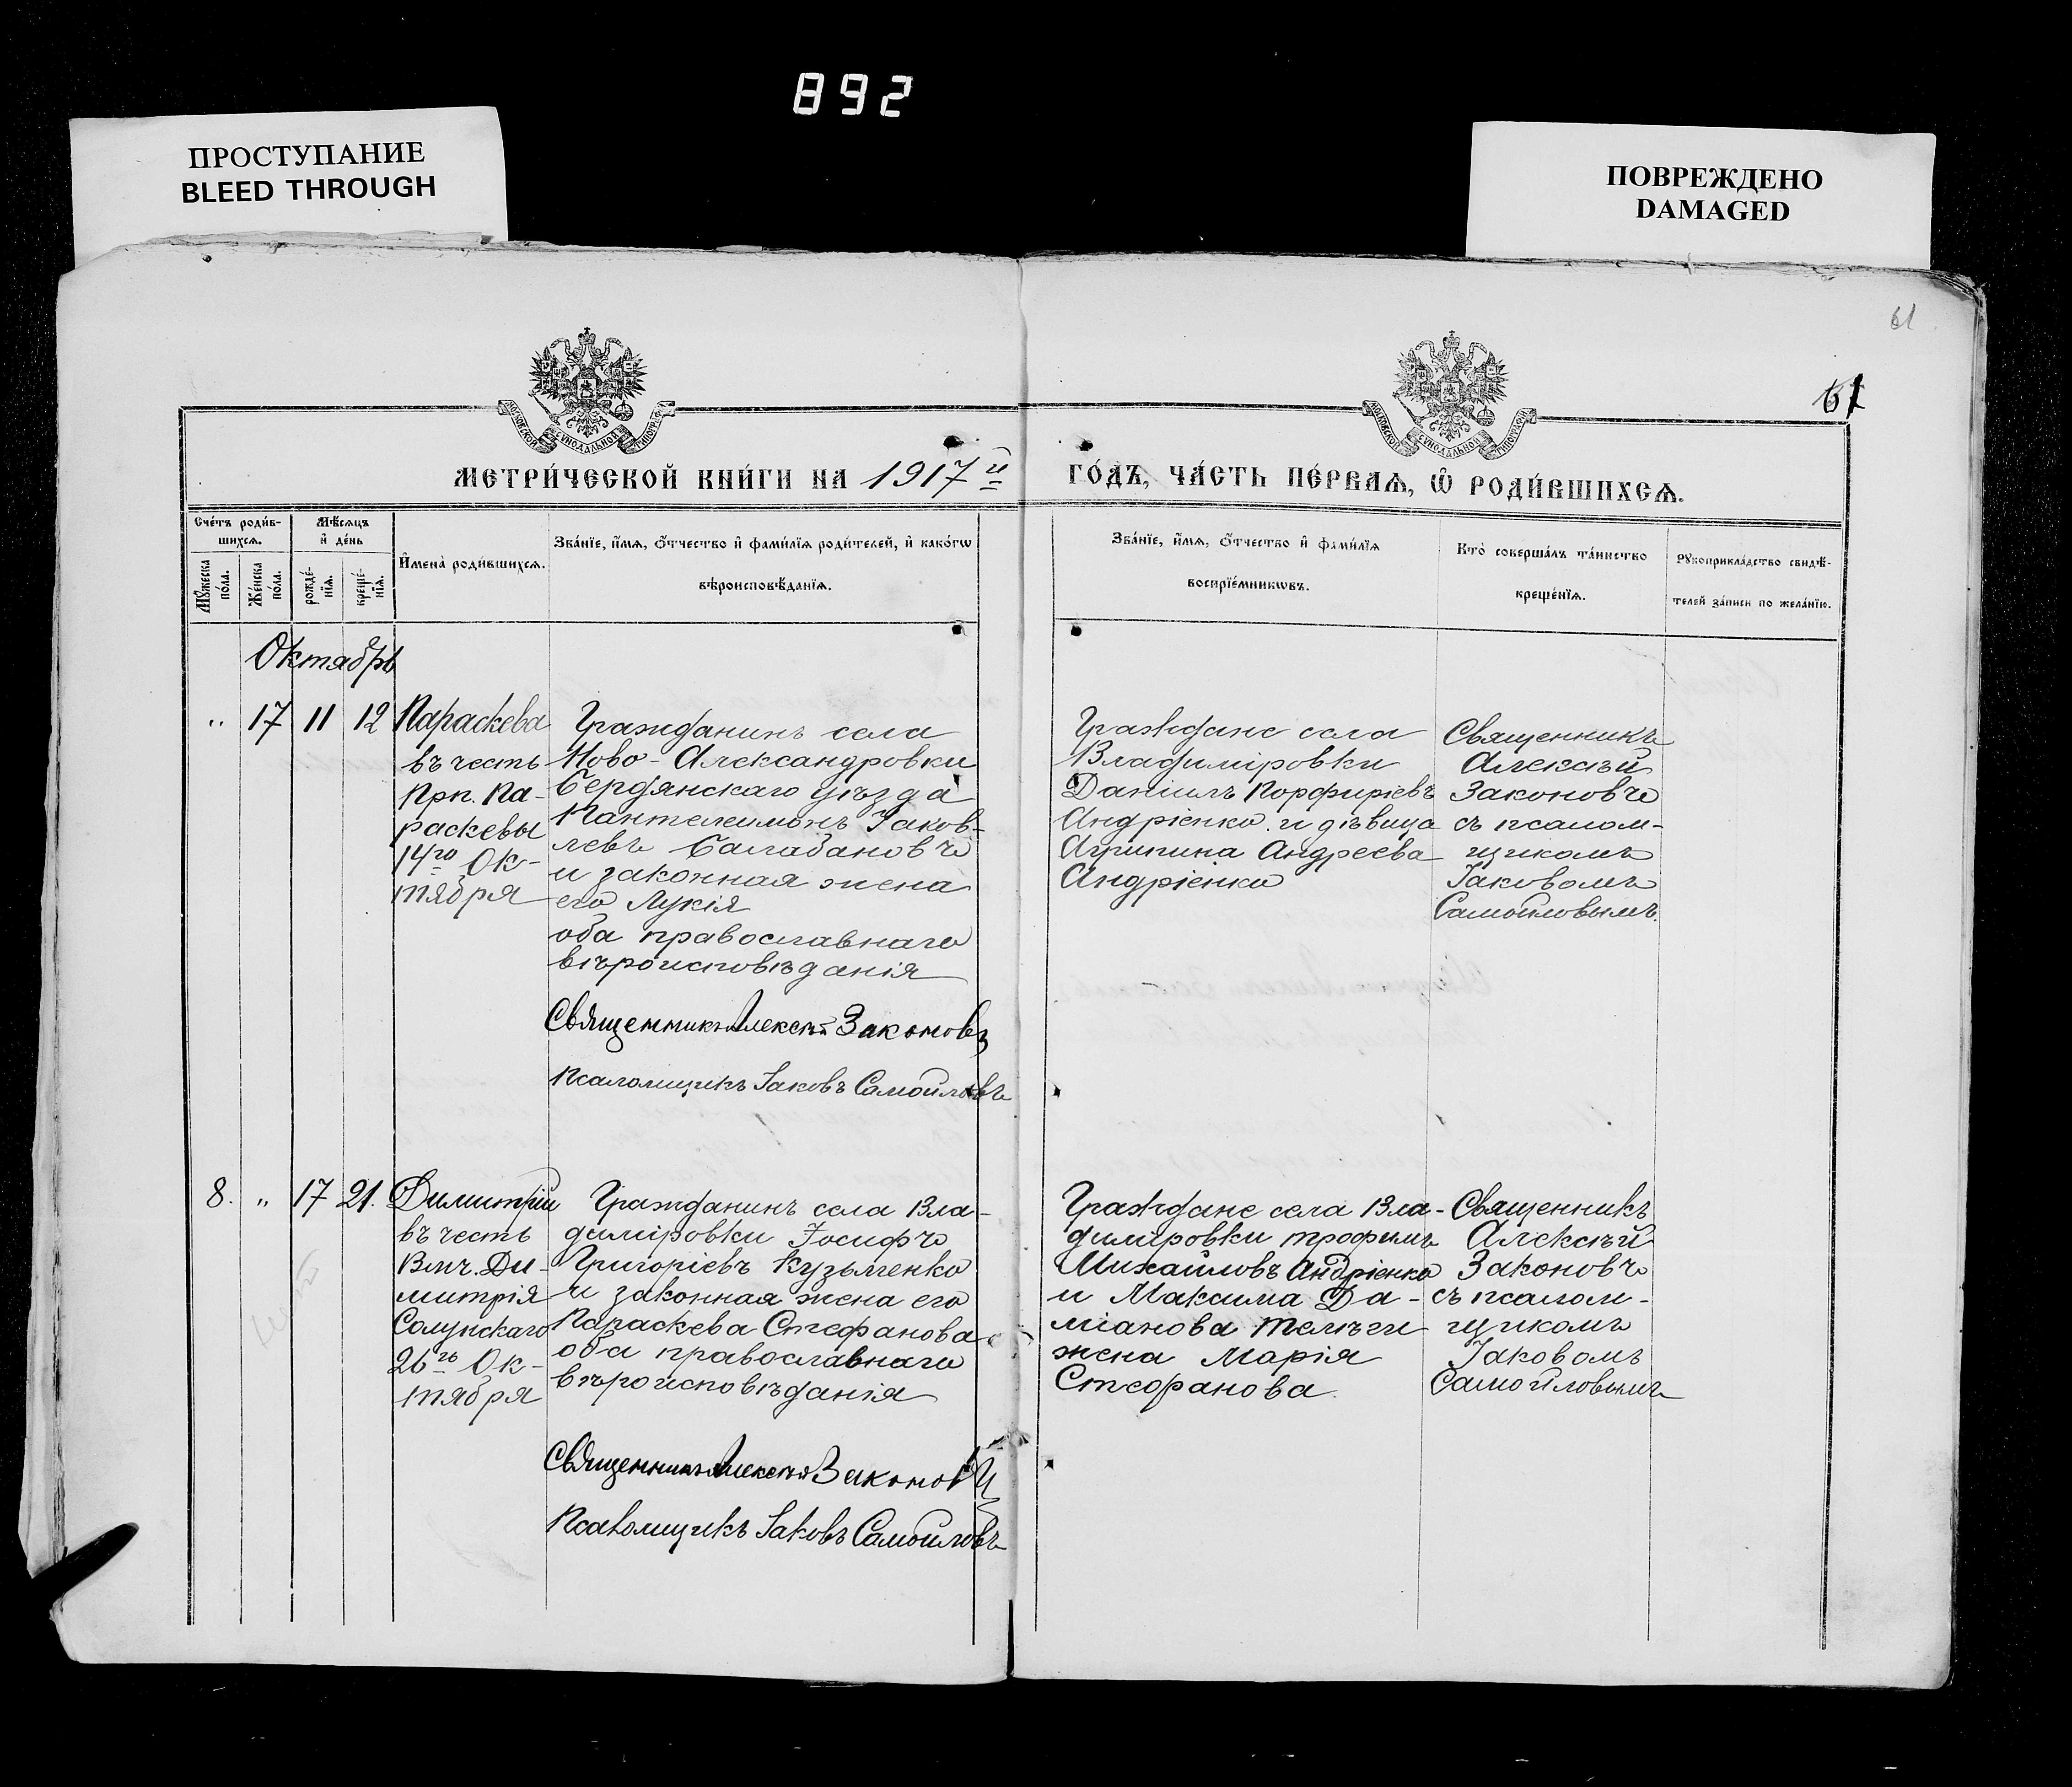 892
ПРОСТУПАНИЕ
BLEED THROUGH
ПОВРЕЖДЕНО
DAMAGED
61
61
МОСКОВСКОЙ СѴНОДАЛЬНОЙ ТИПОГРАФІИ
МОСКОВСКОЙ СѴНОДАЛЬНОЙ ТИПОГРАФІИ
МЕТРИ́ЧЕСКОЙ КНИ́ГИ НА 1917й ГО́ДЪ, ЧА́СТЬ ПЕ́РВАѦ, Ѡ҆ РОДИ́ВШИХСѦ.
Сче́тъ роди́в-
шихсѧ.
Мꙋ́жеска
по́ла.
Же́нска
по́ла.
Мѣ́сѧцъ
и҆ де́нь
рожде́-
нїѧ.
креще́-
нїѧ.
И҆мена̀ роди́вшихсѧ.
Зва́нїе, и҆́мѧ, ѻ҆́тчество и҆ фами́лїѧ роди́телей, и҆ како́гѡ
вѣроисповѣ́данїѧ.
Зва́нїе, и҆́мѧ, ѻ҆́тчество и҆ фами́лїѧ
воспрїе́мникѡвъ.
Кто̀ соверша́лъ та́инство
креще́нїѧ.
Рꙋкоприкла́дство свидѣ́-
телей за́писи по жела́нїю.
Октябрь
„ 17 11 12
Параскева
въ честь
Прп. Па-
раскевы
14го Ок-
тября
Гражданинъ села
Ново-Александровки
Бердянскаго уѣзда
Пантелеимонъ Іаков-
левъ Балабановъ
и законная жена
его Лукія
оба православнаго
вѣроисповѣданія
Священникъ Алексѣй Законовъ
Псаломщикъ Іаковъ Самойловъ
Граждане села
Владиміровки
Даніилъ Порфиріевъ
Андріенко и дѣвица
Агрипина Андреева
Андріенко
Священникъ
Алексѣй
Законовъ
съ псалом-
щикомъ
Іаковомъ
Самойловымъ.
8. „ 17 21.
Димитрій
въ честь
Вмч. Ди-
митрія
Солунскаго
26го Ок-
тября
Гражданинъ села Вла-
диміровки Іосифъ
Григоріевъ Кузьменко
и законная жена его
Параскева Стефанова
оба православнаго
вѣроисповѣданія
Священникъ Алексѣй Законовъ
Псаломщикъ Іаковъ Самойловъ
Граждане села Вла-
диміровки Трофимъ
Михайловъ Андріенко
и Максима Да-
міанова Телѣги
жена Марія
Стефанова.
Священникъ
Алексѣй
Законовъ
съ псалом-
щикомъ
Іаковомъ
Самойловымъ